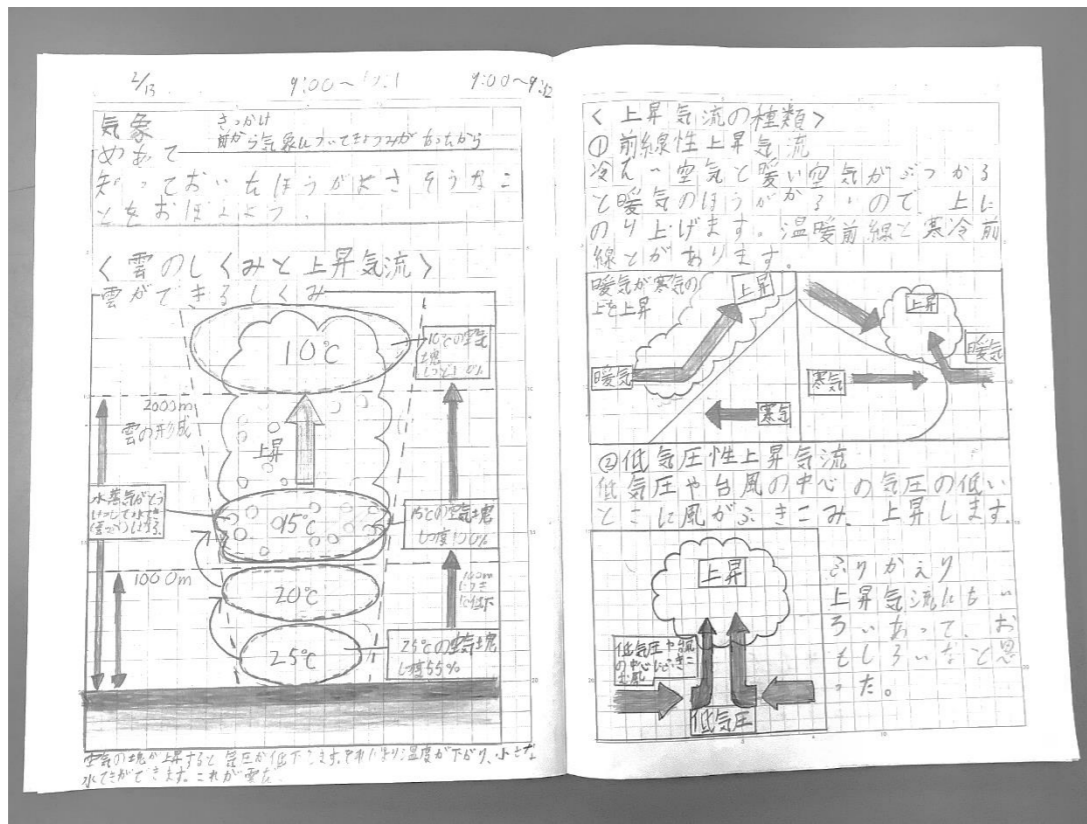 2/13
9:00~
9:00~9:12
気象
きっかけ
前から気象についてきょうみがあったから
めあて
知っておいたほうがよさそうなこ
とをおぼえよう.
<雲のしくみと上昇気流>
雲ができるしくみ
10℃
10℃の空気
塊
2000m
雲の形成
上昇
15℃
15℃の空気塊
しつ度100%
1000m
20℃
100m
低下
25℃
25℃の空気塊
しつ度55%
空気の塊が上昇すると気圧が低下します。それにより温度が下がり、小さな
水てきができます。これが雲だ
<上昇気流の種類>
①前線性上昇気流
冷たい空気と暖い空気がぶつかる
と暖気のほうがかるいので、上に
のり上げます。温暖前線と寒冷前
線とがあります。
暖気が寒気の
上を上昇
上昇
暖気
寒気
上昇
暖気
寒気
②低気圧性上昇気流
低気圧や台風の中心の気圧の低い
とこに風がふきこみ、上昇します。
上昇
低気圧や台風
の中心にふきこ
む風
低気圧
ふりかえり
上昇気流にもい
ろいあって、お
もしろいなと思
った。